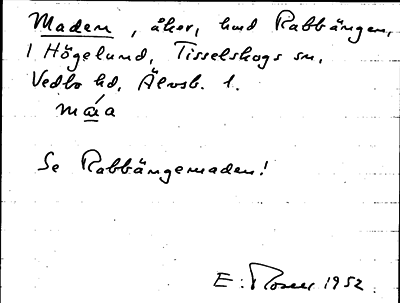 Maden, åker, hmd Rabbängen,
1 Högelund, Tisselskogs sn,
Vedbo hd, Älvsb. l.
máa
Se Rabbängemaden!
E. Rosell 1952.